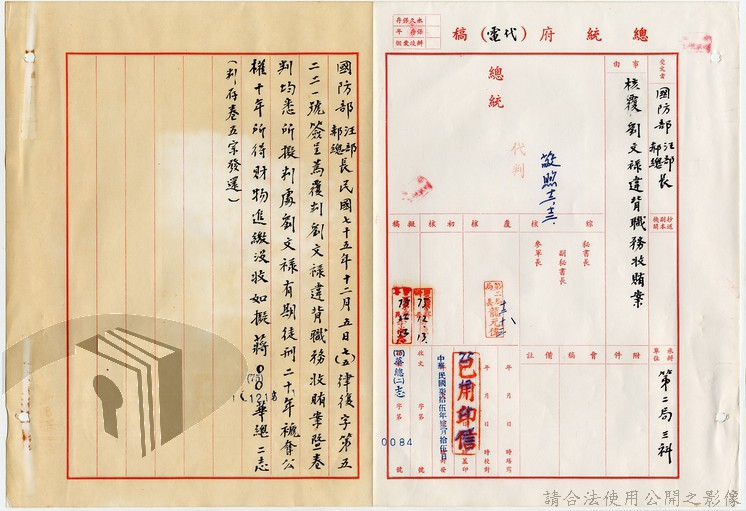 總統府(代電)稿
永久保存
保存 年
辦後彙繳
受文者
國防部
汪部長
郝總長
抄送副本機關
事由
核覆劉文祿違背職務收賄案
總統
代判
敬照
承辦單位
第二局三科
綜核
秘書長
副秘書長
參軍長
覆核
初核
擬稿
附件
會稿
備註
年 月 日 時繕寫
年 月 日 時校對
已用印信
蓋印
中華民國柒拾伍年
(75)華總(二)志
收文 字第 號
字第 號
0084
國防部
汪部長
郝總長
民國七十五年十二月五日(七五)律復字第五
二二一號簽呈為覆判劉文祿違背職務收賄案暨卷
判均悉所擬判處劉文祿有期徒刑二十年褫奪公
權十年所得財物追繳沒收如擬蔣○○華總二志
(75)
(判存卷五宗發還)
請合法使用公開之影像